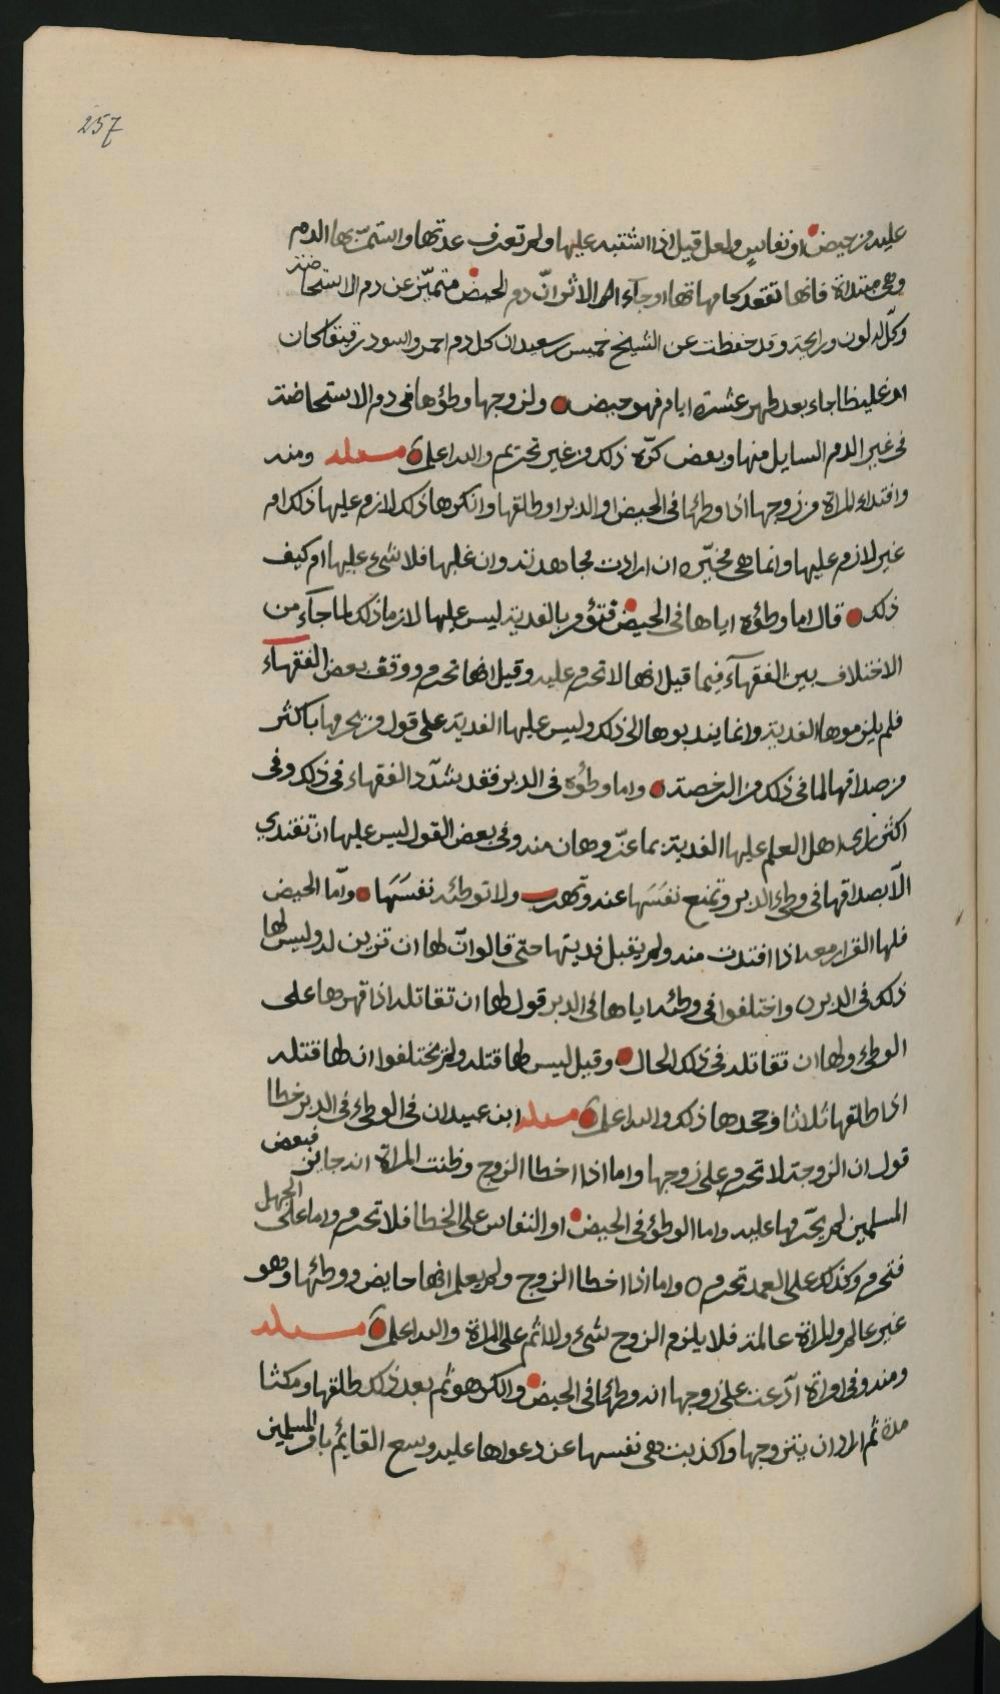 257
عليه من حيض او نفاس ولعل قيل اذا اشتبه عليها ولم تعرف عدتها واستمر بها الدم
وهي مبتداة فانها تقعد كامهاتها او جآء في الاثر انّ دم الحيض متميّز عن دم الاستحاضة
وكلّ له لون ورايحة وقد حفظت عن الشيخ خميس بن سعيد ان كل دم احمر واسود رقيقا كان
ام غليظا جاء بعد طهر عشرة ايام فهو حيض ولزوجها وطؤها في دم الاستحاضة
في غير الدم السايل منها وبعض كرّه ذلك من غير تحريم والله اعلم مسئله ومنه
وافتداء المراة من زوجها اذا وطئها في الحيض او الدبر او طلقها وانكرها ذلك لازم عليها ذلك ام
غير لازم عليها وانما هي مخيّره ان ارادت مجاهدته وان غلبها فلا شيء عليها ام كيف
ذلك قال اما وطؤه اياها في الحيض فتؤمر بالفدية ليس عليها لازما ذلك لما جآء من
الاختلاف بين الفقهآء فيما قيل انها لا تحرم عليه وقيل انها تحرم ووقف بعض الفقهآء
فلم يلزموها الفدية وانما يندبوها الى ذلك وليس عليها الفدية على قول من يحرمها باكثر
من صداقها لما في ذلك من الرخصة واما وطؤه في الدبر فقد شدّد الفقهاء في ذلك وفي
اكثر راي اهل العلم عليها الفدية بما عزّ وهان منه وفي بعض القول ليس عليها ان تفتدي
الّا بصداقها في وطئ الدبر وتمنع نفسَهَا عنه وتهرب ولا توطئه نفسَهَا وامّا الحيض
فلها القرار معه اذا افتدت منه ولم يقبل فديتها حتى قالوا انّ لها ان تزين له وليس لها
ذلك في الدبر واختلفوا في وطئه اياها في الدبر قول لها ان تقاتله اذا قهرها على
الوطئ ولها ان تقاتله في ذلك الحال وقيل ليس لها قتله ولم يختلفوا ان لها قتله
اذا طلقها ثلاثا وجحدها ذلك والله اعلم مسئله ابن عبيدان في الوطئ في الدبر خطا
قول ان الزوجة لا تحرم على زوجها واما اذا اخطا الزوج وظنت المراة انه جايز فبعض
المسلمين لم يحرّمها عليه واما الوطؤ في الحيض او النفاس على الخطا فلا تحرم واما على الجهل
فتحرم وكذلك على العمد تحرم واما اذا اخطا الزوج ولم يعلم انها حايض ووطئها وهو
غير عالم والمراة عالمة فلا يلزم الزوج شيء والاثم على المراة والله اعلم مسئله
ومنه وفي امراة ادّعت على زوجها انه وطئها في الحيض وانكر هو ثم بعد ذلك طلقها ومكثا
مدة ثم اراد ان يتزوجها واكذبت هي نفسها عن دعواها عليه وسع القايم بامر المسلمين